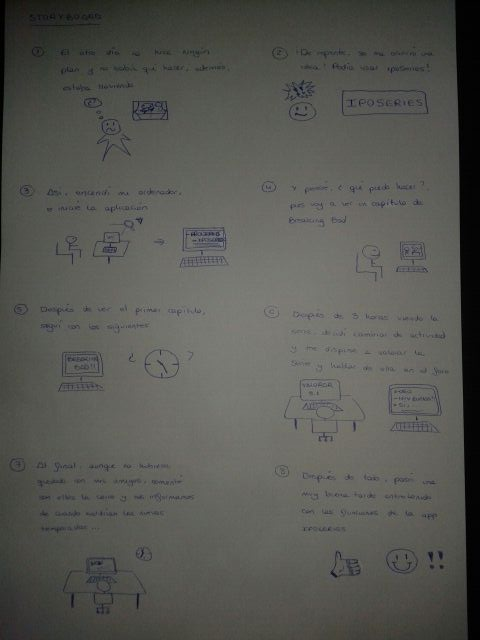 STORYBOARD
1 El otro día no tenía ningún
plan y no sabía qué hacer, además,
estaba lloviendo
2 ¡De repente, se me ocurrió una
idea! Podía usar IPOSERIES!
IPOSERIES
3 Así, encendí mi ordenador,
e inicié la aplicación
4 Y pensé, ¿ qué puedo hacer?,
pues voy a ver un capítulo de
Breaking Bad
5 Después de ver el primer capítulo,
seguí con los siguientes
BREAKING
BAD!!
¿ ?
6 Después de 3 horas viendo la
serie, decidí cambiar de actividad
y me dispuse a valorar la
serie y hablar de ella en el foro
VALORAR
7 Al final, aunque no hubiera
quedado con mis amigos, comenté
con ellos la serie y nos informamos
de cuando saldrían las nuevas
temporadas ...
8 Después de todo, pasé una
muy buena tarde entretenido
con las funciones de la app
IPOSERIES
!!